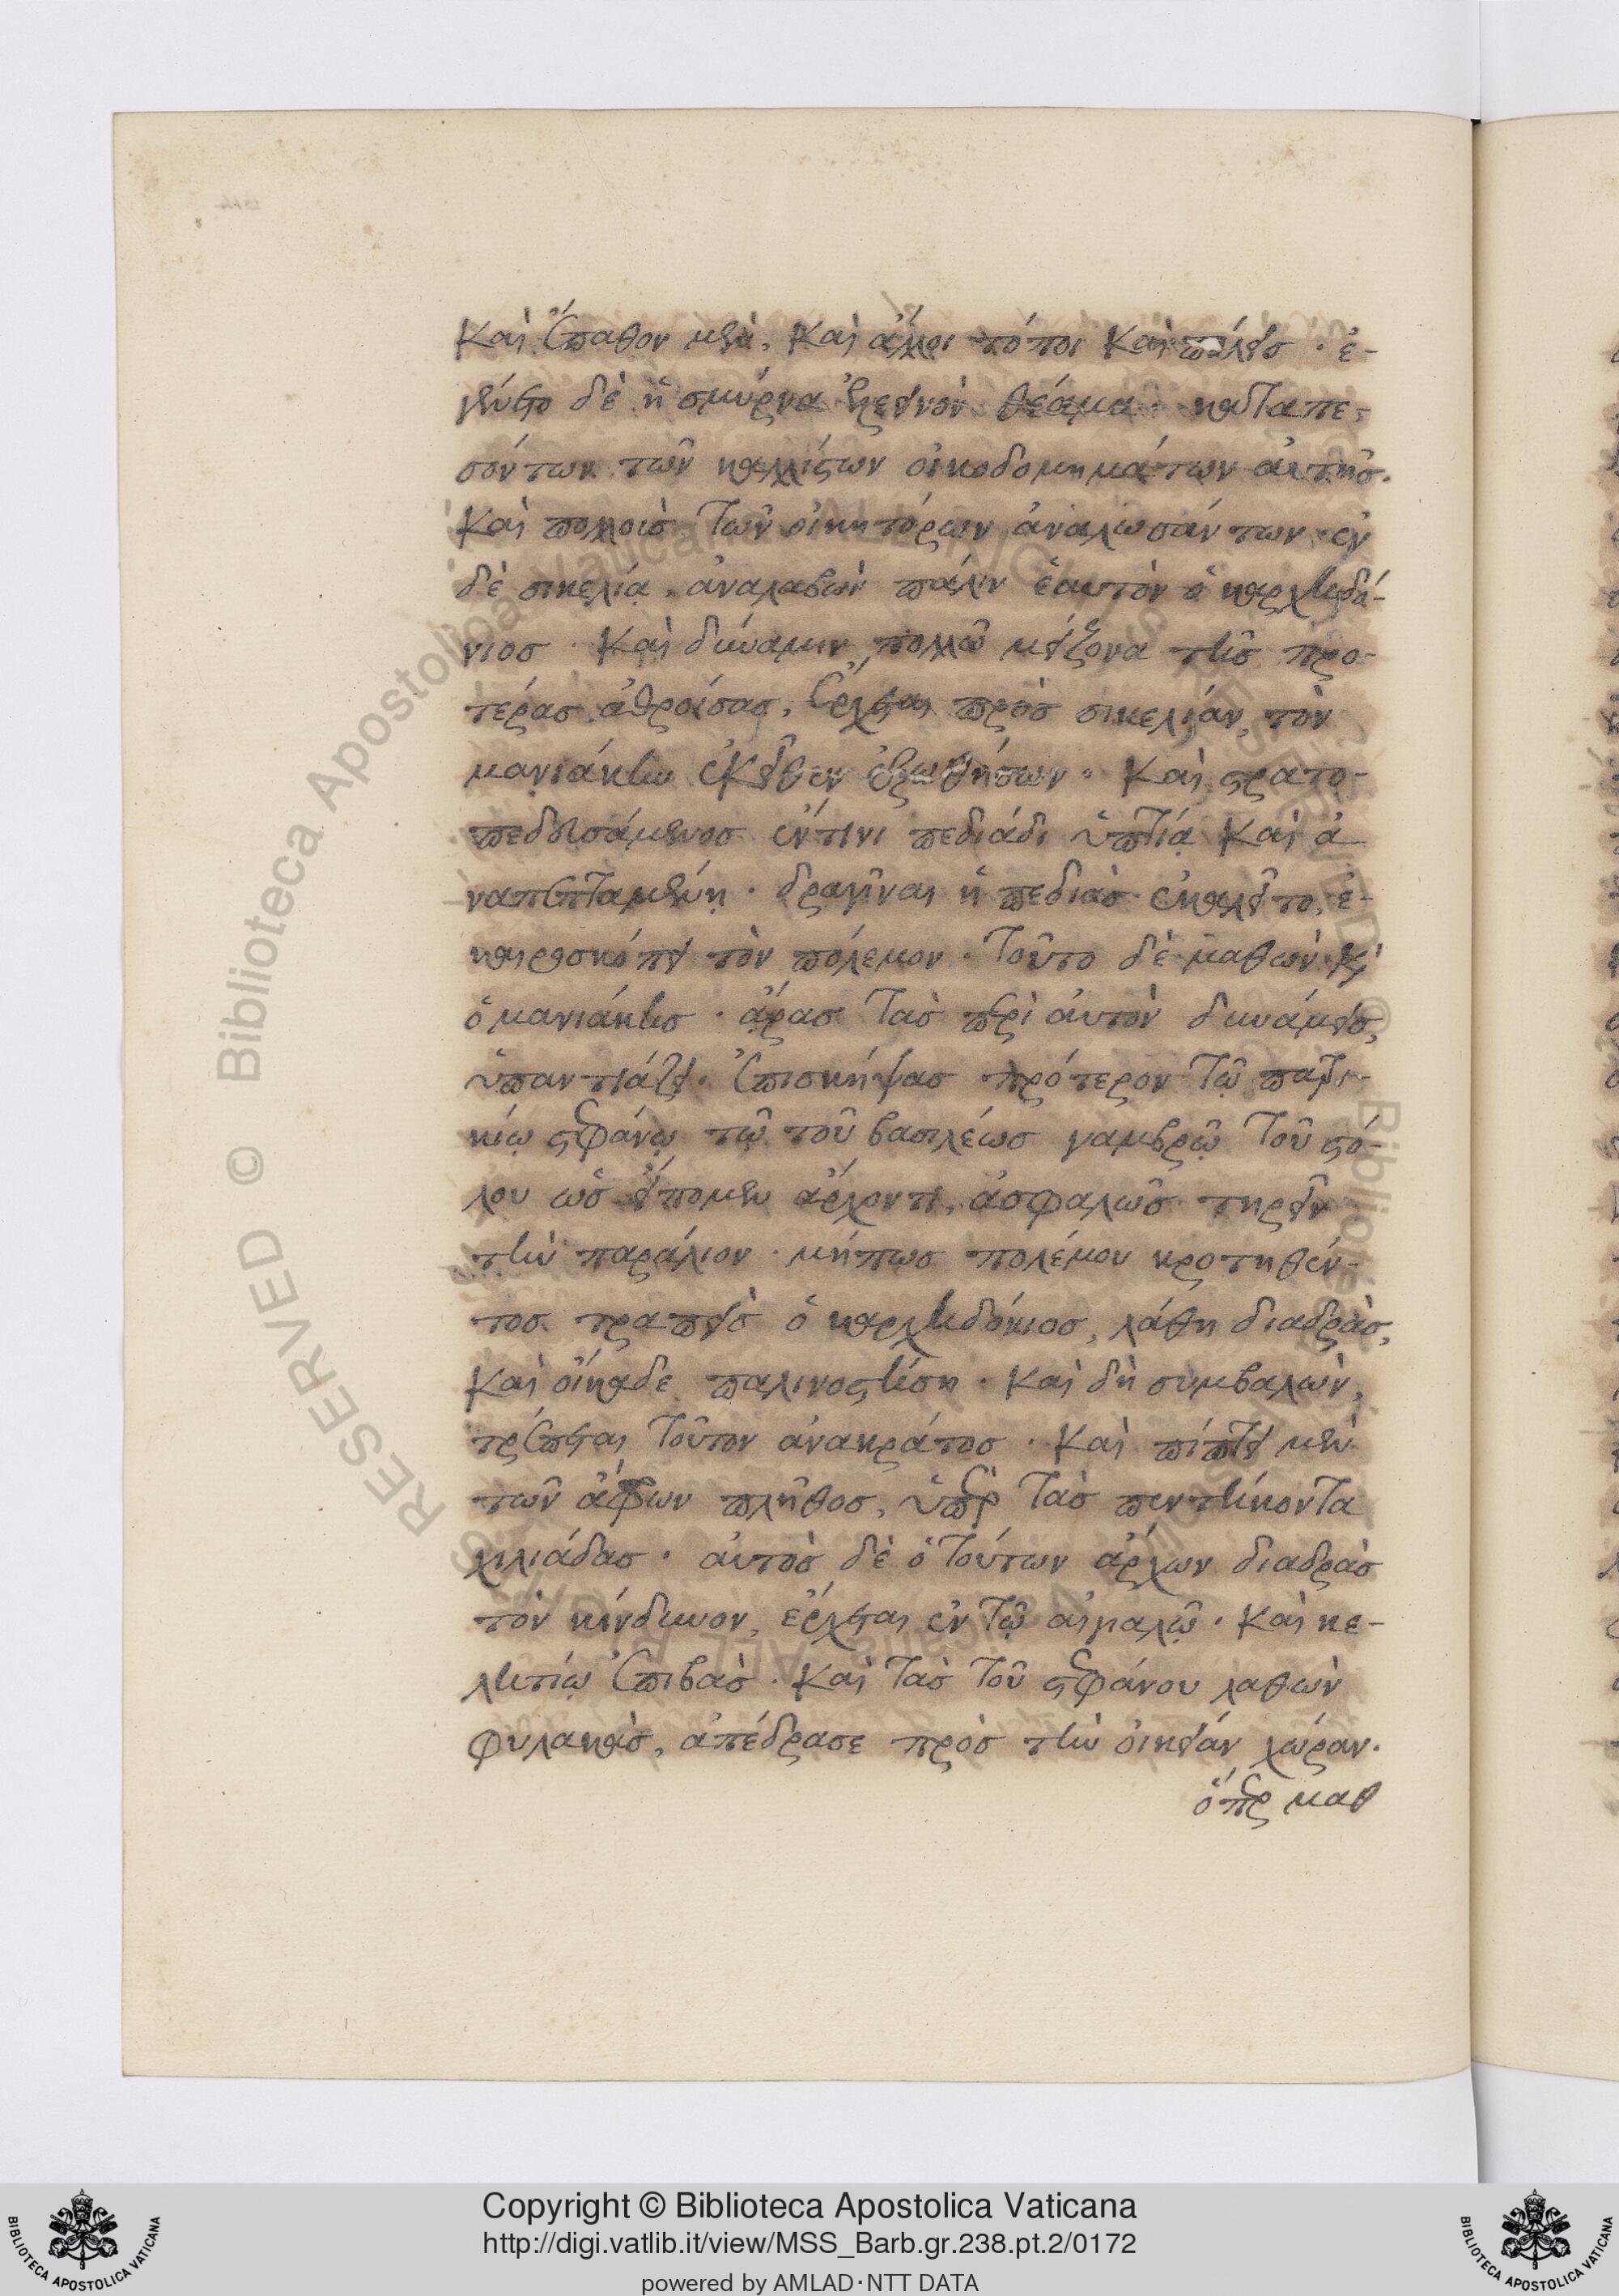 καὶ ἔπαθον μὲν, καὶ ἄλλοι τόποι καὶ πόλεις · ἐ-
γένετο δὲ ἡ σμύρνα ἐλεεινὸν θέαμα · καταπε-
σόντων τῶν καλλίστων οἰκοδομημάτων αὐτῆς.
καὶ πολλοῖς τῶν οἰκητόρων ἀναλωσάντων · ἐν
δὲ σικελίᾳ, ἀναλαβὼν πάλιν ἑαυτὸν ὁ καρχηδό-
νιος · καὶ δύναμιν πολλῶ μείζονα τῆς προ-
τέρας ἀθροίσας, ἔρχεται πρὸς σικελίαν, τὸν
μανιάκην ἐκεῖθεν ἐξωθήσων · καὶ στρατο-
πεδευσάμενος ἔν τινι πεδιάδι ὑπτίᾳ καὶ ἀ
ναπεπταμένῃ · δραγῖναι ἡ πεδιὰς ἐκαλεῖτο, ἐ-
καιροσκόπει τὸν πόλεμον · Τοῦτο δὲ μαθὼν κὶ
ὁ μανιάκης · ἄρας τὰς περὶ αὐτὸν δυνάμεις,
ὑπαντιάζει · ἐπισκήψας πρότερον τῷ πατρι-
κίῳ στεφάνῳ τῷ τοῦ βασιλέως γαμβρῷ τοῦ στό-
λου ὡς εἴπομεν ἄρχοντι, ἀσφαλῶς τηρεῖν
τὴν παράλιον · μήπως πολέμου κροτηθέν-
τος τραπεὶς ὁ καρχηδόνιος, λάθη διαδρὰς,
καὶ οἴκαδε παλινοστήση · καὶ δὴ συμβαλὼν,
τρέπεται τοῦτον ἀνακράτος · καὶ πίπτει μὲν
τῶν ἄφρων πλῆθος, ὑπὲρ τὰς πεντήκοντα
χιλιάδας · αὐτὸς δὲ ὁ τούτων ἄρχων διαδρὰς
τὸν κίνδυνον, ἔρχεται ἐν τῷ αἰγιαλῷ · καὶ κε-
λητίῳ ἐπιβὰς · καὶ τὰς τοῦ στεφάνου λαθὼν
φυλακὰς, ἀπέδρασε πρὸς τὴν οἰκείαν χώραν.
ὅπερ μαθ
Copyright © Biblioteca Apostolica Vaticana
http://digi.vatlib.it/view/MSS_Barb.gr.238.pt.2/0172
powered by AMLAD·NTT DATA
BIBLIOTECA APOSTOLICA VATICANA
BIBLIOTECA APOSTOLICA VATICANA